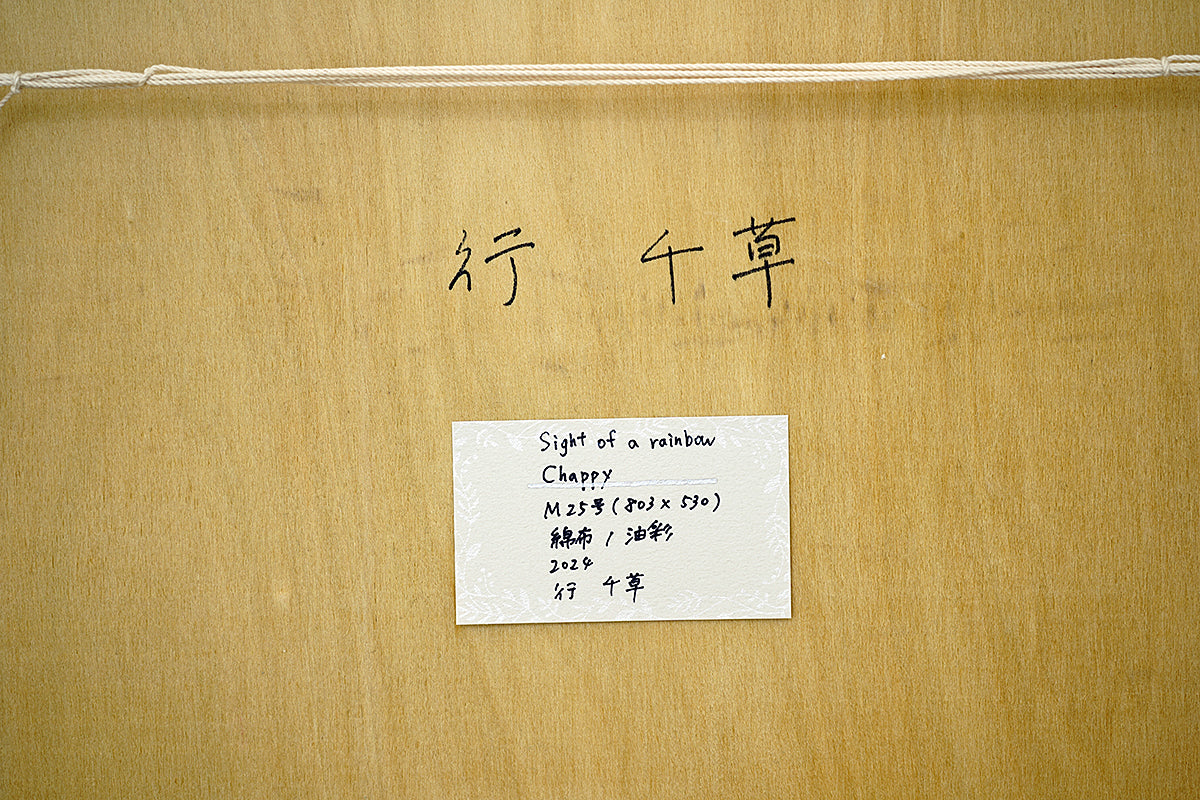 行 千草
Sight of a rainbow
Chappy
M25号(803×530)
綿布 / 油彩
2024
行 千草